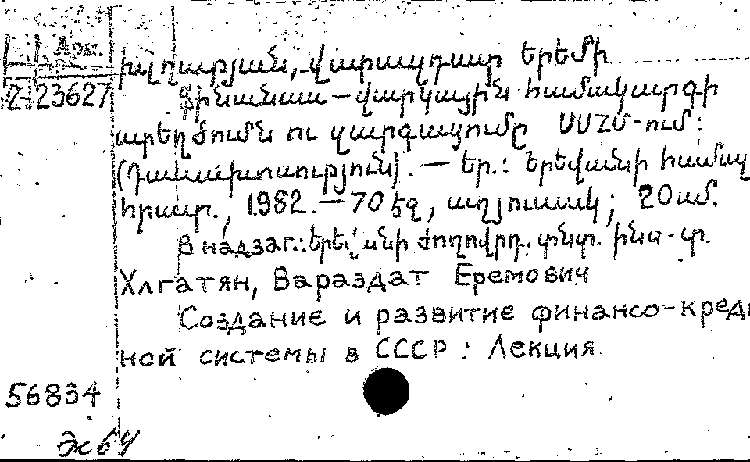 Арм.
Խլղաթյան, Վարազդատ Երեմի
2-23627
Ֆինանսա-վարկային համակարգի
ստեղծումն ու զարգացումը ՍՍՀՄ-ում:
(Դասախոսություն). — Եր.: Երևանի համալ
հրատ., 1982. — 70 էջ, աղյուսակ; 20 սմ.
В надзаг.: Երև անի ժողովրդ. տնտ. ինս-տ.
Хлгатян, Вараздат Еремович
Создание и развитие финансо-креди
ной системы в СССР: Лекция.
56834